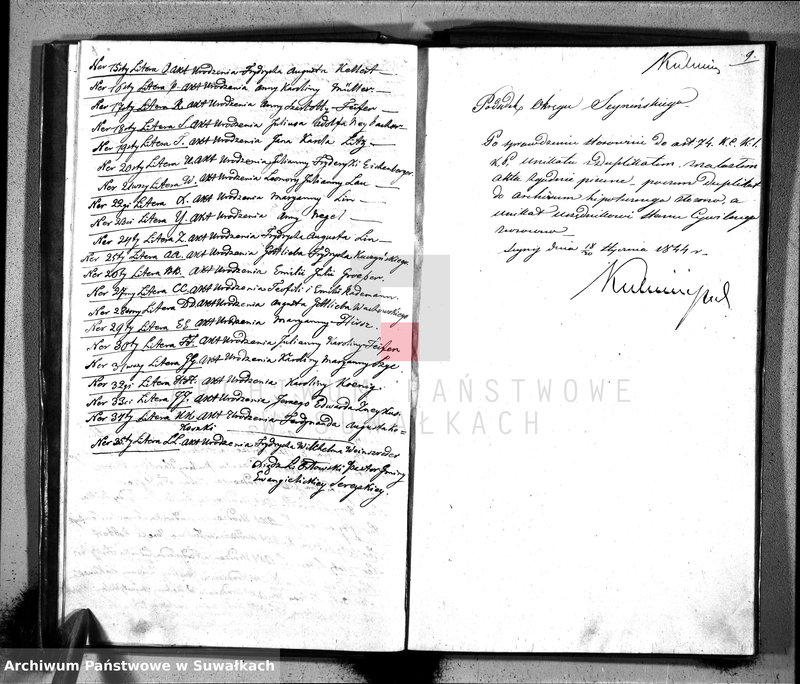 Ner 15sty Litera P. akt Urodzenia Frydrycha Augusta Kellert
Ner 16sty Litera P. akt Urodzenia Anny Karoliny Müller
Ner 17sty Litera R. akt Urodzenia Anny Feifer
Ner 18sty Litera S. akt Urodzenia Juliusa Adolfa
Ner 19sty Litera T. akt Urodzenia Jana Karola Litz
Ner 20sty Litera U. akt Urodzenia Julianny Fryderyki Eichenberger
Ner 21wszy Litera W. akt Urodzenia Leonory Julianny Lau
Ner 22gi Litera X. akt Urodzenia Maryanny Lin
Ner 23ci Litera Y. akt Urodzenia Anny Nagel
Ner 24ty Litera Z. akt Urodzenia Frydrycha Augusta Lin
Ner 25ty Litera AA. akt Urodzenia Gottlieba Frydrycha
Ner 26ty Litera BB. akt Urodzenia Emilii Julii
Ner 27my Litera CC. akt Urodzenia Teofili i Emilii Rademann
Ner 28smy Litera DD. akt Urodzenia Augusta Gottlieba
Ner 29ty Litera EE. akt Urodzenia Maryanny Hirsz
Ner 30ty Litera FF. akt Urodzenia Julianny Karoliny Feifer
Ner 31wszy Litera GG. akt Urodzenia Karoliny Maryanny
Ner 32gi Litera HH. akt Urodzenia Karoliny Koenig
Ner 33ci Litera akt Urodzenia Jerzego Edwarda
Ner 34ty Litera KK. akt Urodzenia Ferdynanda Augusta Ko=
Ner 35ty Litera LL. akt Urodzenia Frydrycha Wilhelma
Pastor Gminy
Ewangelickiey Sereyskiey.
9
Podsędek Okręgu Seyneńskiego
Po sprawdzeniu stosownie do art 74. K.C.K.P.
unikatu z Duplikatem znalazłem
akta zgodnie pisane, poczem Duplikat
do archiwum hipotecznego złożono, a
unikat urzędnikowi Stanu Cywilnego
zwrócono
Seyny dnia 18/30 Stycznia 1844 r.
ARCHIWUM PAŃSTWOWE
W SUWAŁKACH
Archiwum Państwowe w Suwałkach